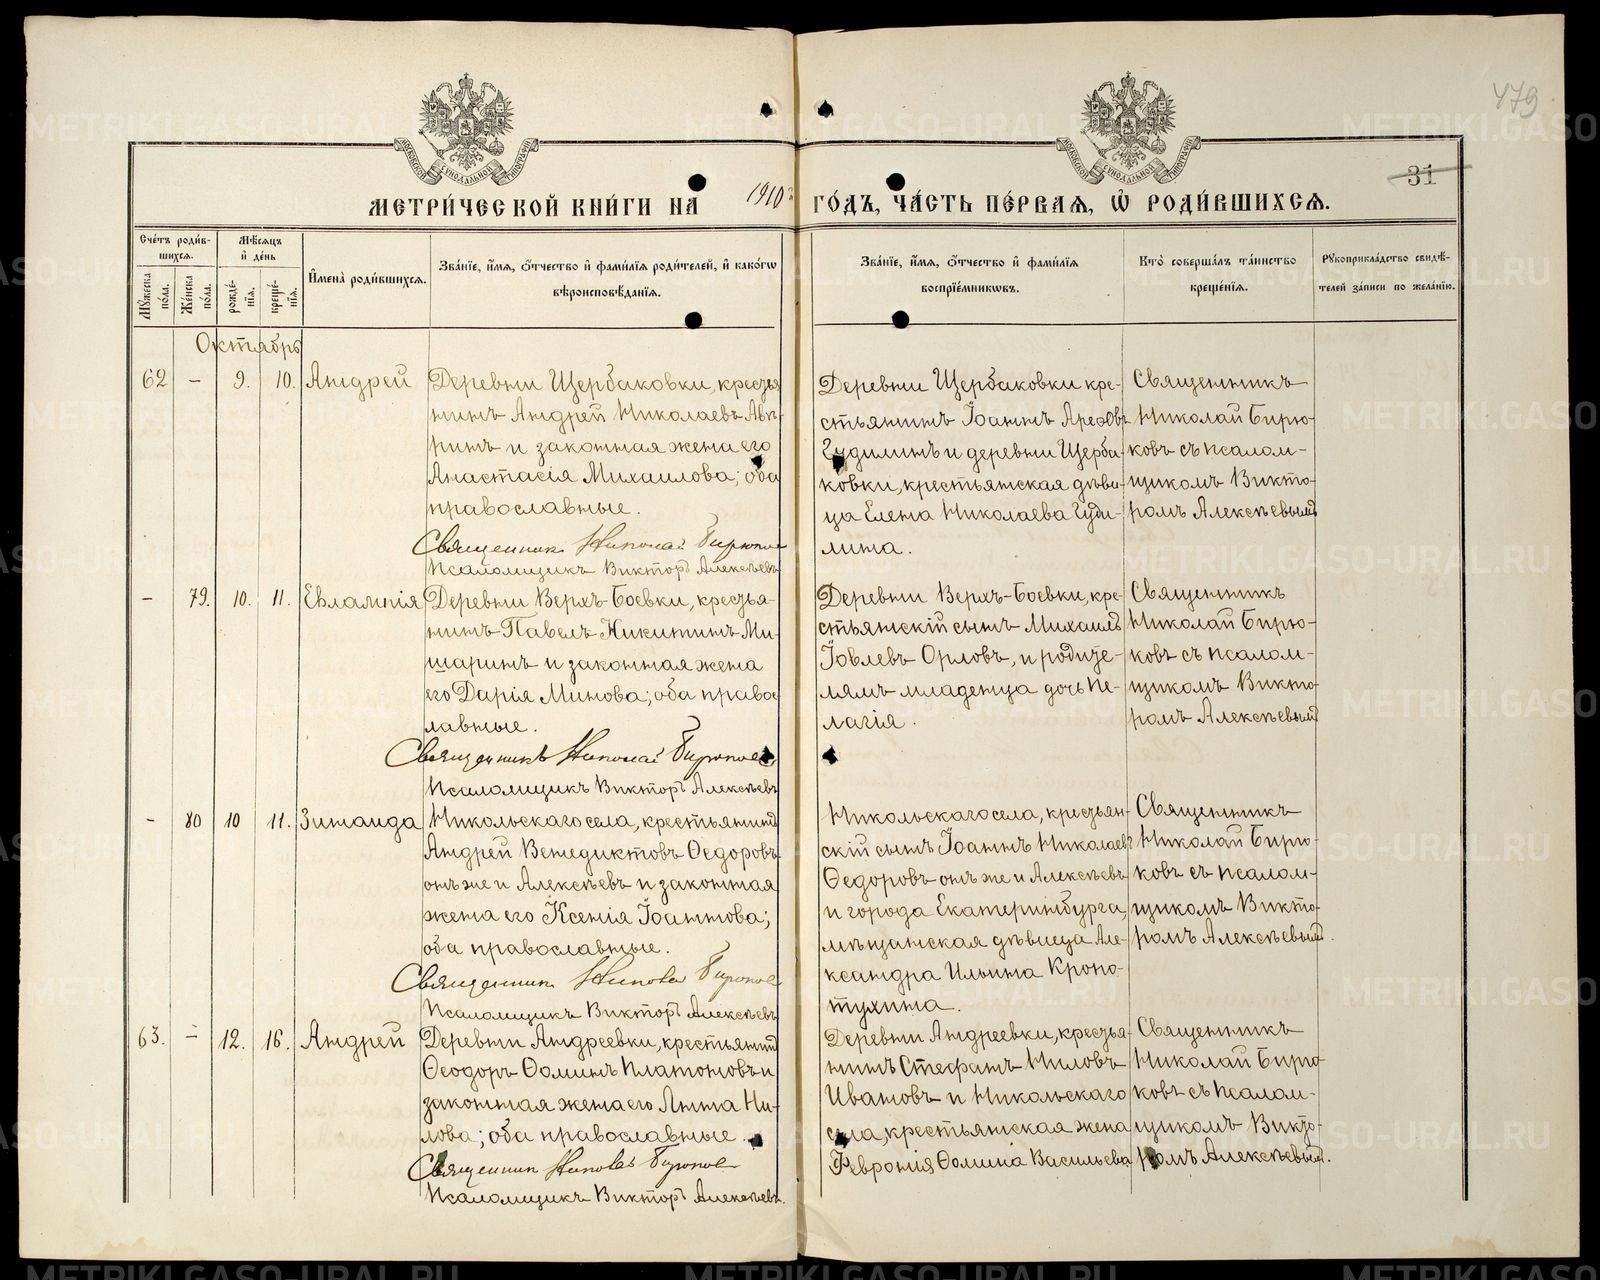 479
31
МЕТРИ́ЧЕСКОЙ КНИ́ГИ НА 1910 ГО́ДЪ, ЧА́СТЬ ПЕ́РВАЯ, Ѽ РОДИ́ВШИХСЯ.
Сче́тъ роди́в-
шихся.
Мѣ́сяцъ
и҆ де́нь
Мꙋ́жеска по́ла.
Же́нска по́ла.
рожде́-
нїя.
креще́-
нїя.
И҆мена̀ роди́вшихся.
Зва́нїе, и҆́мя, ѻ҆́тчество и҆ фами́лїя роди́телей, и҆ како́гѡ
вѣроисповѣ́данїя.
Зва́нїе, и҆́мя, ѻ҆́тчество и҆ фами́лїя
воспрїе́мникѡвъ.
Кто̀ соверша́лъ та́инство
креще́нїя.
Рꙋкоприкла́дство свидѣ́-
телей за́писи по жела́нїю.
Октябрь
62 - 9. 10. Андрей
Деревни Щербаковки, крестья
нинъ Андрей Николаевъ
ринъ и законная жена его
Анастасія Михаилова; оба
православные.
Священник Николай Бирюков
Псаломщикъ Викторъ Алексѣевъ
Деревни Щербаковки кре-
стьянинъ Іоаннъ
Гудилинъ и деревни Щерба-
ковки, крестьянская дѣви-
ца Елена Николаева Гуди-
лина.
Священникъ
Николай Бирю-
ковъ съ псалом-
щикомъ Викто-
ромъ Алексѣевымъ
- 79. 10. 11. Евлампія
Деревни Верхъ-Боевки, крестья-
нинъ Павелъ Никитинъ Ми-
шаринъ и законная жена
его Дарія Минова; оба право
лавные.
Священникъ Николай Бирюков
Псаломщикъ Викторъ Алексѣевъ
Деревни Верхъ-Боевки, кре-
стьянскій сынъ Михаилъ
Іовлевъ Орловъ, и родите-
лямъ младенца дочь Пе-
лагія.
Священникъ
Николай Бирю-
ковъ съ псалом-
щикомъ Викто-
ромъ Алексѣевымъ
- 80 10 11. Зинаида
Никольскаго села, крестьянинъ
Андрей Венедиктовъ Ѳедоровъ
онъ же и Алексѣевъ и законная
жена его Ксенія Іоаннова;
оба православные.
Священник Николай Бирюков
Псаломщикъ Викторъ Алексѣевъ
Никольскаго села, крестьян-
скій сынъ Іоаннъ Николаевъ
Ѳедоровъ онъ же и Алексѣевъ
и города Екатеринбурга,
мѣщанская дѣвица Але-
ксандра Ильина Кропо-
тухина.
Священникъ
Николай Бирю-
ковъ съ псалом-
щикомъ Викто-
ромъ Алексѣевымъ.
63. - 12. 16. Андрей
Деревни Андреевки, крестьянинъ
Ѳеодоръ Ѳоминъ Платоновъ и
законная жена его Анна Ни-
лова; оба православные.
Священник Николай Бирюков
Псаломщикъ Викторъ Алексѣевъ.
Деревни Андреевки, крестья-
нинъ Стефанъ Ниловъ
Ивановъ и Никольскаго
села, крестьянская жена
Февронія Ѳомина Васильева
Священникъ
Николай Бирю
ковъ съ псалом-
щикомъ Викто-
ромъ Алексѣевым.
METRIKI.GASO-URAL.RU